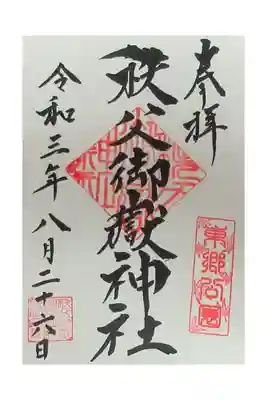 奉拝
東郷公園
秩父御嶽神社
令和三年八月二十六日